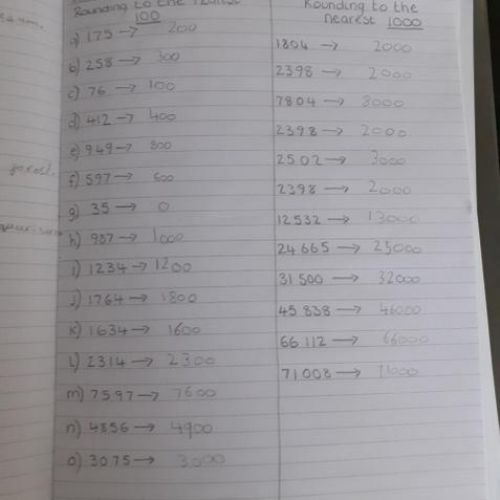 Rounding to the nearest
100
a) 175 → 200
b) 258 → 300
c) 76 → 100
d) 412 → 400
e) 949 → 800
f) 597 → 600
g) 35 → 0
h) 987 → 1000
i) 1234 → 1200
j) 1764 → 1800
k) 1634 → 1600
l) 2314 → 2300
m) 7597 → 7600
n) 4856 → 4900
o) 3075 → 3000
Rounding to the
nearest 1000
1804 → 2000
2398 → 2000
7804 → 8000
2398 → 2000
2502 → 3000
2398 → 2000
12532 → 13000
24665 → 25000
31500 → 32000
45838 → 46000
66112 → 66000
71008 → 71000